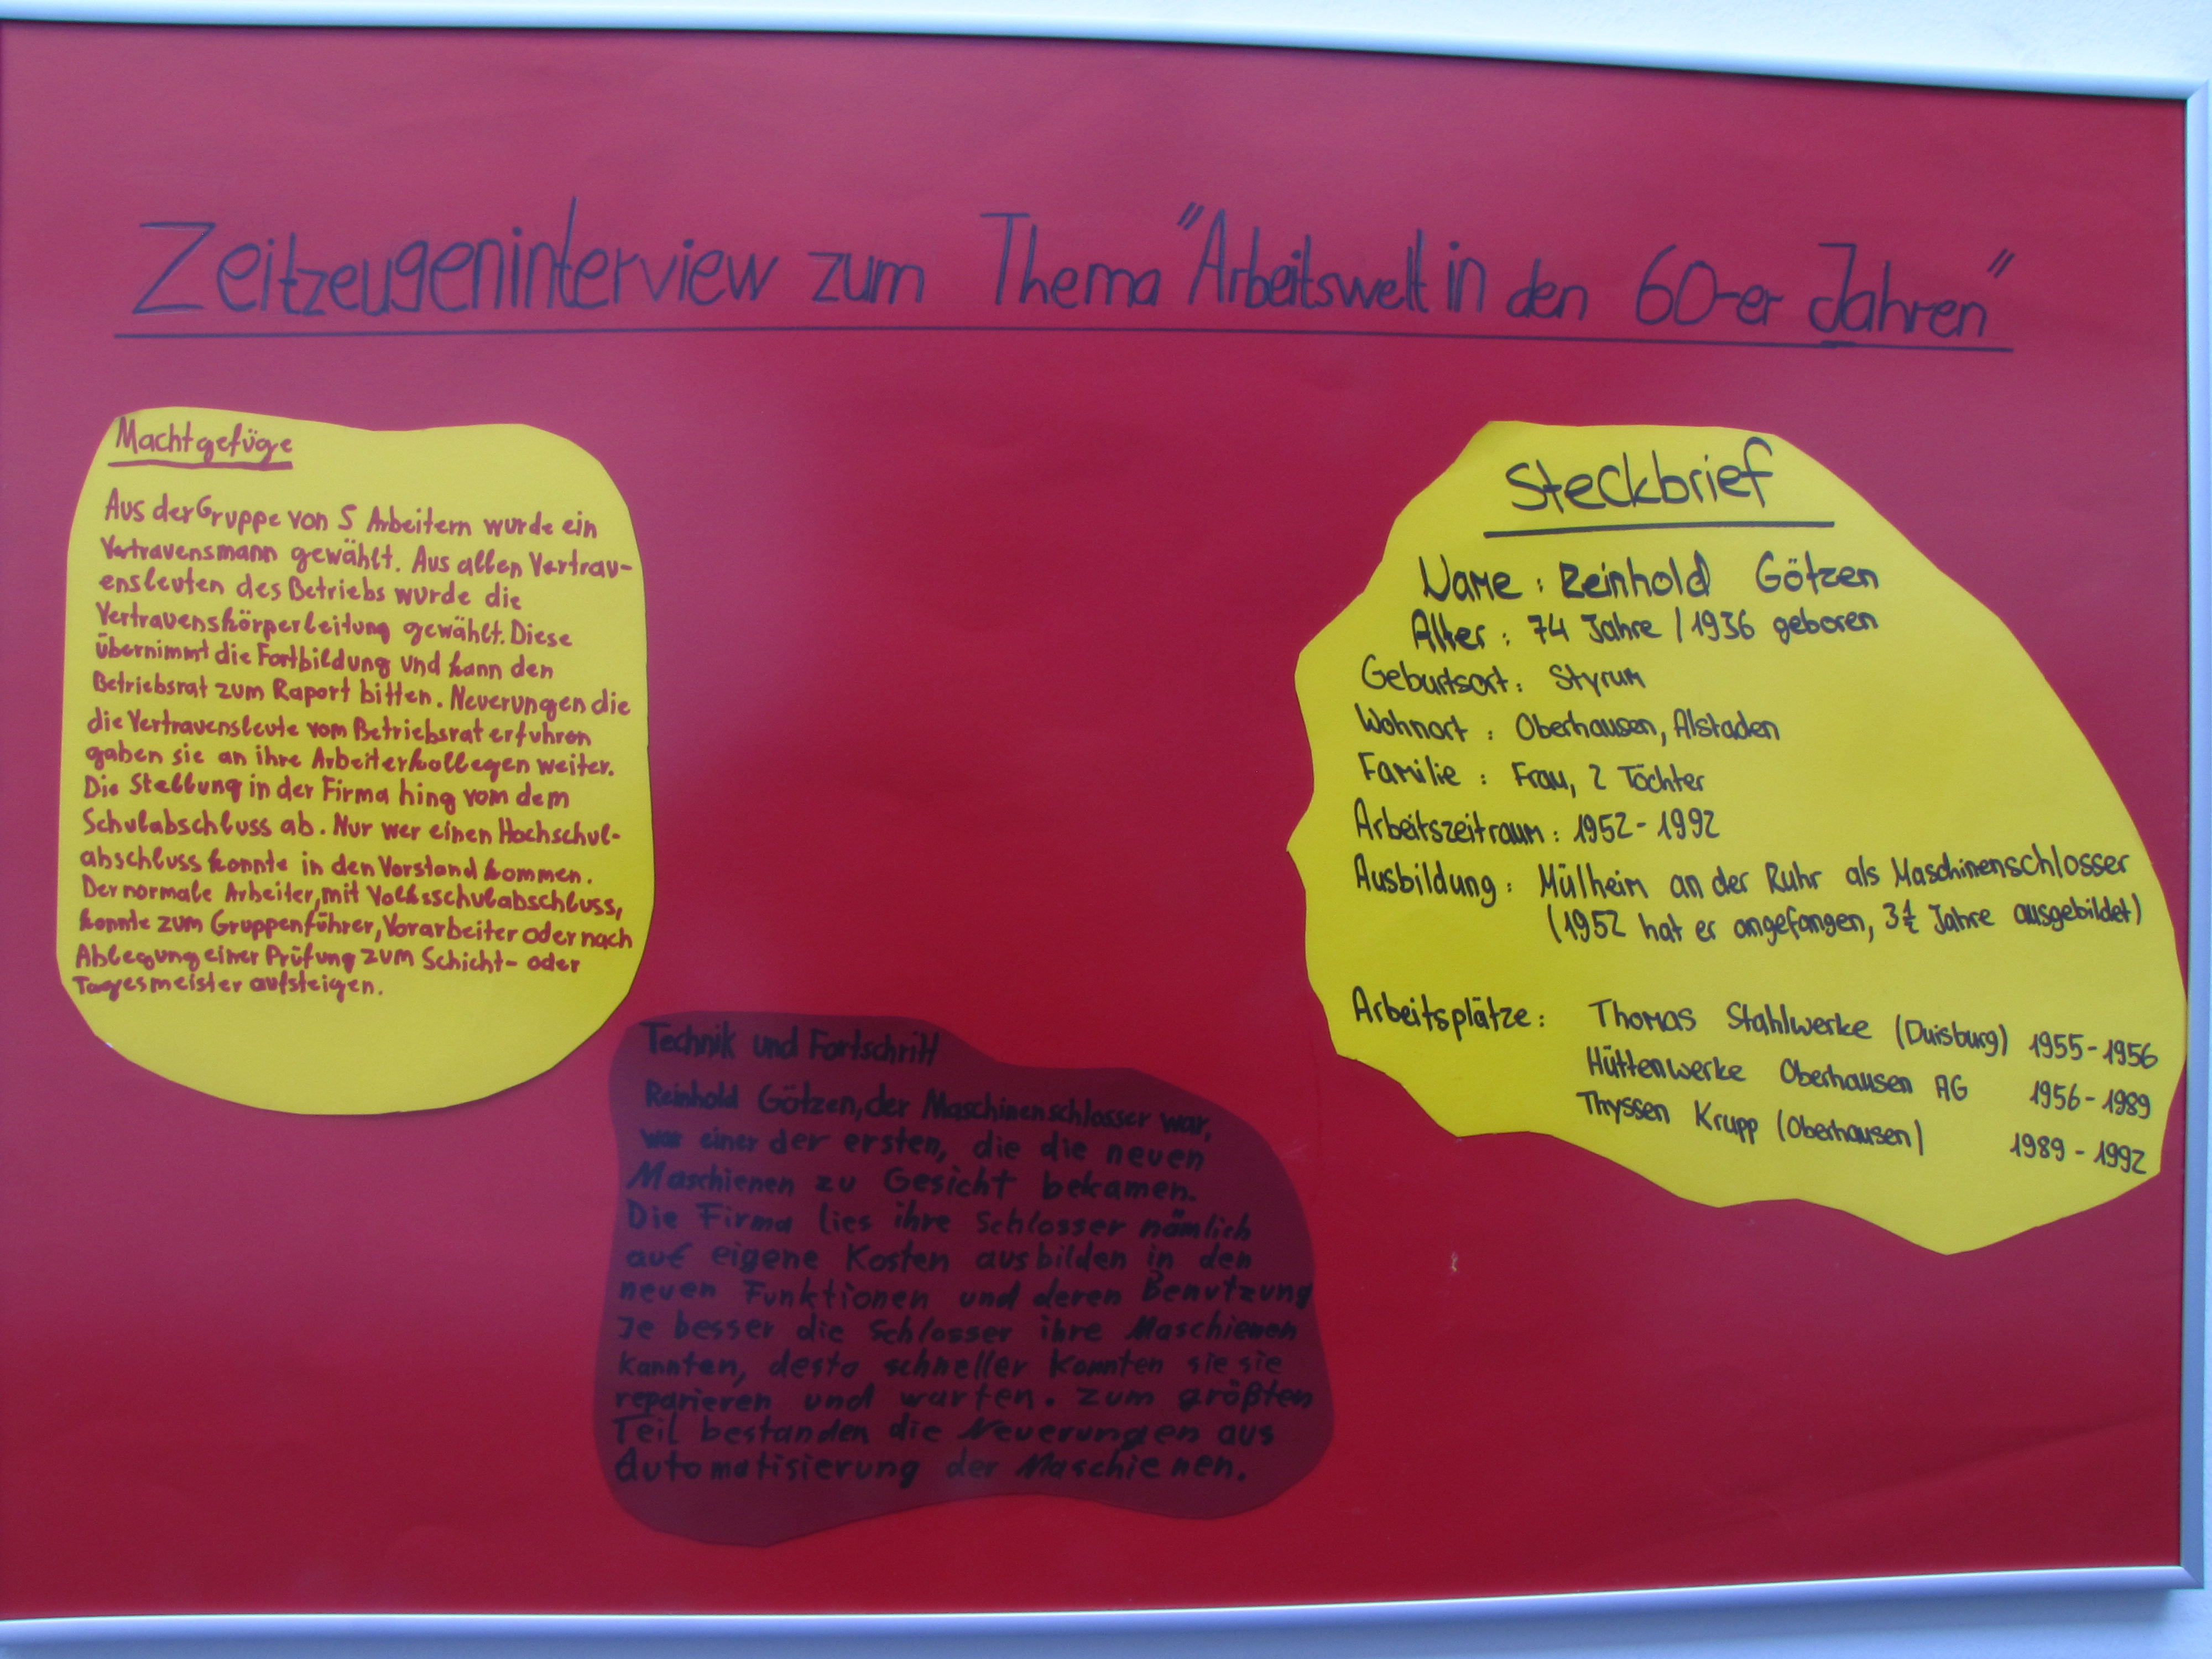 Zeitzeugeninterview zum Thema "Arbeitswelt in den 60-er Jahren"
Machtgefüge
Aus der Gruppe von 5 Arbeitern wurde ein
Vertravensmann gewählt. Aus allen Vertrau-
ensleuten des Betriebs wurde die
Vertrauenskörperleitung gewählt. Diese
übernimmt die Fortbildung und kann den
Betriebsrat zum Raport bitten. Neuerungen die
die Vertrauensleute vom Betriebsrat erfuhren
gaben sie an ihre Arbeiterkollegen weiter.
Die Stellung in der Firma hing vom dem
Schulabschluss ab. Nur wer einen Hochschul-
abschluss konnte in den Vorstand kommen.
Der normale Arbeiter, mit Volksschulabschluss,
konnte zum Gruppenführer, Vorarbeiter oder nach
Ablegung einer Prüfung zum Schicht- oder
Tagesmeister aufsteigen.
Technik und Fortschritt
Reinhold Götzen, der Maschinenschlosser war,
war einer der ersten, die die neuen
Maschienen zu Gesicht bekamen.
Die Firma lies ihre Schlosser nämlich
auf eigene Kosten ausbilden in den
neuen Funktionen und deren Benutzung
Je besser die Schlosser ihre Maschienen
kannten, desto schneller konnten sie sie
reparieren und warten. Zum größten
Teil bestanden die Neuerungen aus
Automatisierung der Maschienen.
Steckbrief
Name : Reinhold Götzen
Alter : 74 Jahre / 1936 geboren
Geburtsort : Styrum
Wohnort : Oberhausen, Alstaden
Familie : Frau, 2 Töchter
Arbeitszeitraum : 1952 - 1992
Ausbildung : Mülheim an der Ruhr als Maschinenschlosser
(1952 hat er angefangen, 3½ Jahre ausgebildet)
Arbeitsplätze : Thomas Stahlwerke (Duisburg) 1955 - 1956
Hüttenwerke Oberhausen AG 1956 - 1989
Thyssen Krupp (Oberhausen) 1989 - 1992